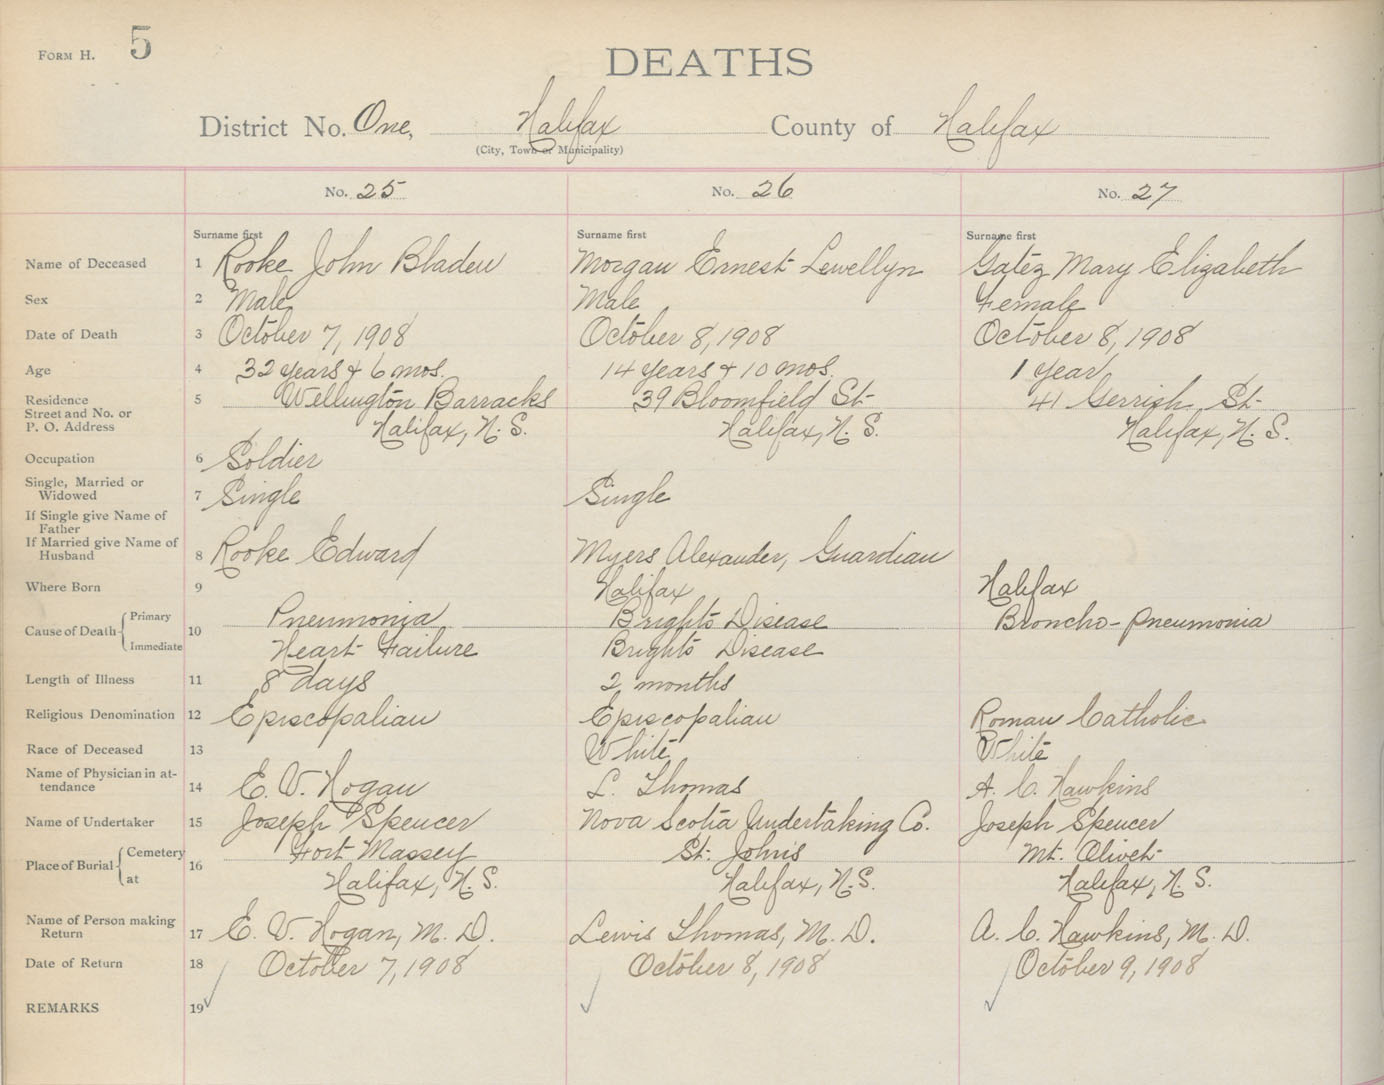 FORM H. 5
DEATHS
District No. One, Halifax County of Halifax
(City, Town or Municipality)
No. 25 No. 26 No. 27
Surname first Surname first Surname first
Name of Deceased 1 Rooke John Bladen Morgan Ernest Lewellyn Gatez Mary Elizabeth
Sex 2 Male Male Female
Date of Death 3 October 7, 1908 October 8, 1908 October 8, 1908
Age 4 32 years & 6 mos. 14 years & 10 mos. 1 year
Residence 5 Wellington Barracks 39 Bloomfield St. 41 Gerrish St.
Street and No. or
P. O. Address Halifax, N. S. Halifax, N. S. Halifax, N. S.
Occupation 6 Soldier
Single, Married or
Widowed 7 Single Single
If Single give Name of
Father
If Married give Name of
Husband 8 Rooke Edward Myers Alexander, Guardian
Where Born 9 Halifax Halifax
Cause of Death Primary 10 Pneumonia Brights Disease Broncho-pneumonia
Immediate Heart Failure Brights Disease
Length of Illness 11 8 days 2 months
Religious Denomination 12 Episcopalian Episcopalian Roman Catholic
Race of Deceased 13 White White
Name of Physician in at-
tendance 14 E. V. Hogan L. Thomas A. C. Hawkins
Name of Undertaker 15 Joseph Spencer Nova Scotia Undertaking Co. Joseph Spencer
Place of Burial Cemetery 16 Fort Massey St. John's Mt. Olivet
at Halifax, N. S. Halifax, N. S. Halifax, N. S.
Name of Person making
Return 17 E. V. Hogan, M. D. Lewis Thomas, M. D. A. C. Hawkins, M. D.
Date of Return 18 October 7, 1908 October 8, 1908 October 9, 1908
REMARKS 19